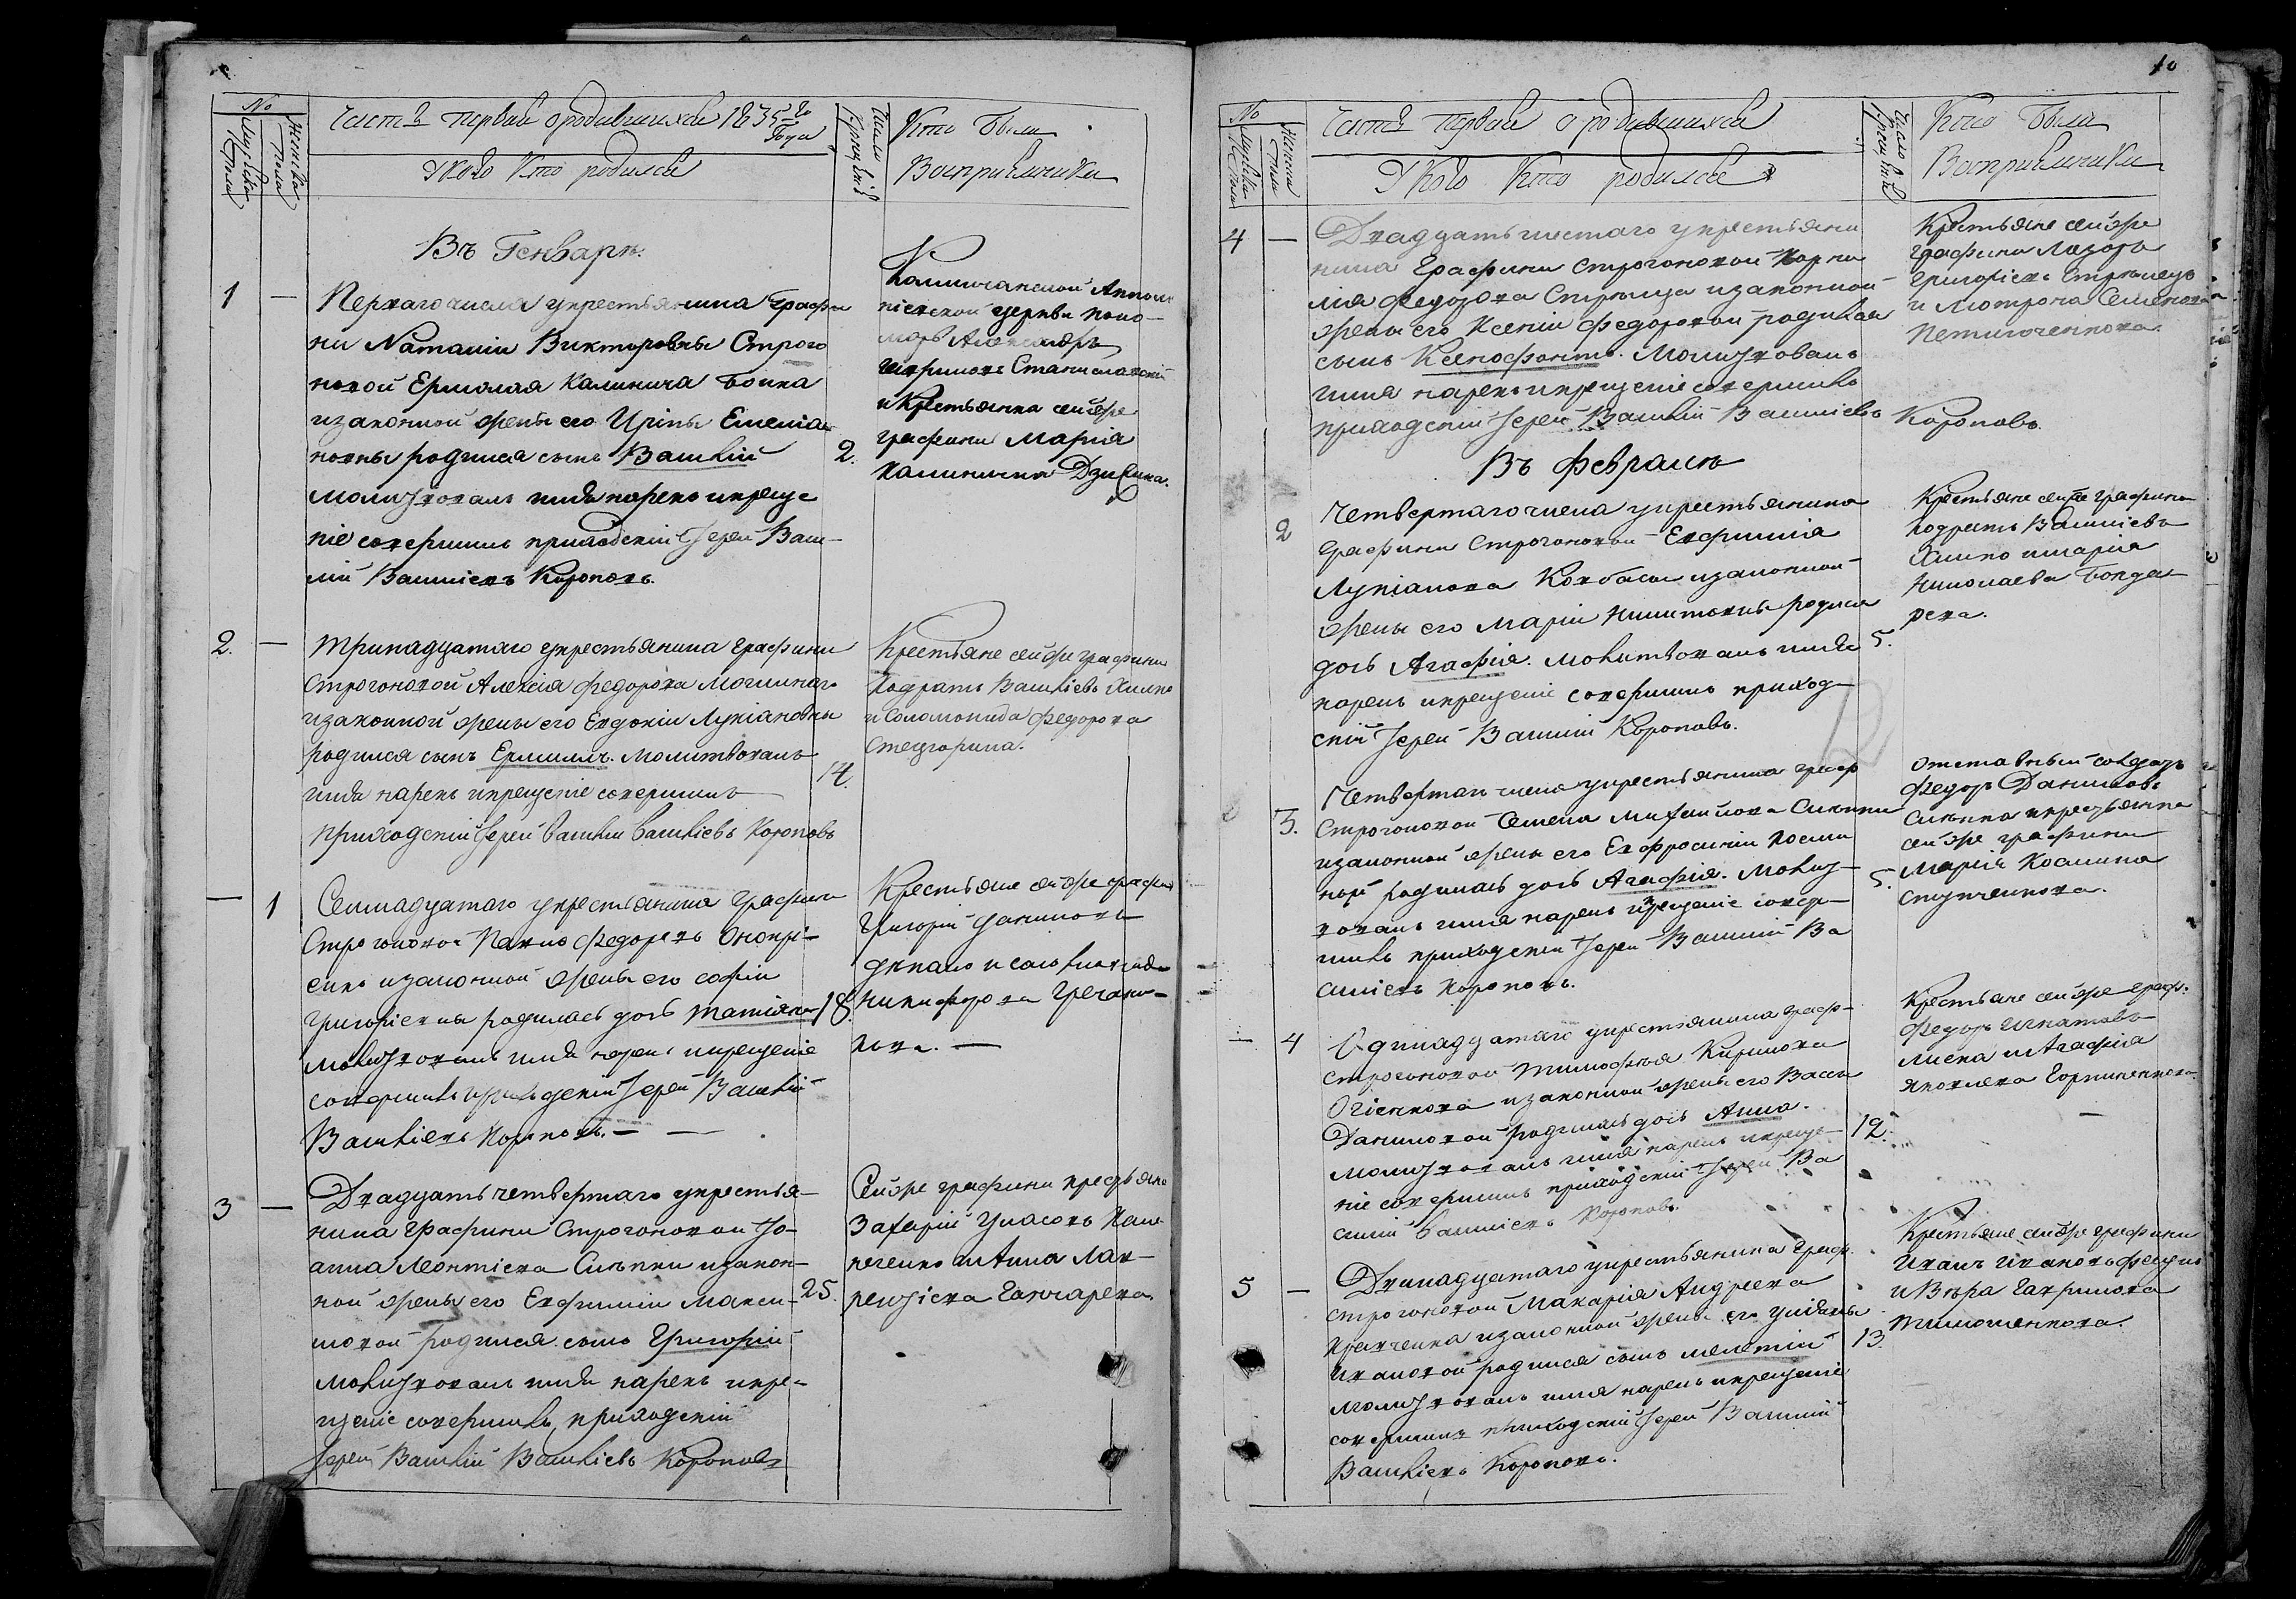 №
Мужеска пола
Женска пола
Часть первая о родившихся 1835го Года
У кого кто родился
Число Крещенія
Кто были
Восприемники
Въ Генваре.
1 —
Перваго числа у крестьянина Графи
ни Наталіи Викторовны Строго
новой Ермолая Калинича Бойка
и законной жены его Ирины Емеліа
новны родился сынъ Василій
молитвовалъ имя нарекъ и креще
ніе совершилъ приходскій Іерей Васи-
лій Василіевъ Короповъ.
2.
церкви поно-
марь Александръ
и крестьянка сей же
графини Марія
2. —
Тринадцатаго у крестьянина графини
Строгоновой Алексія Федорова
и законной жены его Евдокіи Лукіановны
родился сынъ Ермилъ. Молитвовалъ
имя нарекъ и крещеніе совершилъ
приходскій Іерей Василій Василіевъ Короповъ
14.
Крестьяне сей же графини
Кодратъ Василіевъ Химко
и Соломонида Федорова
— 1
Семнадцатаго у крестьянина Графини
Строгоновой Павла Федоровъ Онопрі-
енко и законной жены его Софіи
Григоріевны родилась дочь Татіана
молитвовалъ имя нарекъ и крещеніе
совершилъ приходскій Іерей Василій
Василіевъ Короповъ. —
18.
Крестьяне сей же графин
Григорій Даниловъ
Никифорова Гречани-
кова. —
3 —
Двадцать четвертаго у крестья-
нина Графини Строгоновой Іо-
анна Леонтіева Сиенки и закон-
ной жены его Евфиміи Макси-
мовой родился сынъ Григорій
молитвовалъ имя нарекъ и кре-
щеніе совершилъ приходскій
Іерей Василій Василіевъ Короповъ
25.
Сей же графини крестьяне
Захарій Власовъ
и Анна Лав-
рентіева Ганчарева.
10
№
Мужеска пола
Женска пола
Часть первая о родившихся
У кого кто родился
Число Крещенія
Кто были
Восприемники
4 —
Двадцать шестаго у крестьяни
нина Графини Строгоновой Корни
лія Федорова Стрельца и законной
жены его Ксеніи Федоровой родился
сынъ Ксенофонтъ. Молитвовалъ
имя нарекъ и крещеніе совершилъ
приходскій Іерей Василій Василіевъ
Короповъ.
Крестьяне сей же
графини Лазарь
Григоріевъ Стрелецъ
и Мотрона Семенова
Въ Феврале
2
Четвертаго числа у крестьянина
Графини Строгоновой Евфимія
Лукіанова Ковбасы и законной
жены его Маріи Никитовны родилась
дочь Агафія. Молитвовалъ имя
нарекъ и крещеніе совершилъ приход-
скій Іерей Василій Короповъ.
5.
Крестьяне сей же графини
Кодратъ Василіевъ
Химко и Марія
Николаева Бонда-
рева.
3.
Четвертаго числа у крестьянина граф
Строгоновой Семена Михайлова Сиенки
и законной жены его Евфросиніи Косми
ной родилась дочь Агафія. Молит-
вовалъ имя нарекъ и крещеніе совер-
шилъ приходскій Іерей Василій Ва
силіевъ Короповъ.
5.
Отставный солдатъ
Федоръ Даниловъ
Сиенка и крестьянка
сей же графини
Марія Космина
Ступченкова.
— 4
Одинадцатаго у крестьянина граф-
Строгоновой Тимофея Кирилова
Огіенкова и законной жены его Вассы
Даниловой родилась дочь Анна.
молитвовалъ имя нарекъ и креще-
ніе совершилъ приходскій Іерей Ва
силій Василіевъ Короповъ.
12.
Крестьяне сей же граф.
Федоръ Игнатовъ
и Агафія
Яковлева
5 —
Двинадцатаго у крестьянина Граф.
Строгоновой Макарія Андреева
Кравченка и законной жены его Уліаны
Ивановой родился сынъ Мелетій
молитвовалъ имя нарекъ и крещеніе
совершилъ приходскій Іерей Василій
Василіевъ Короповъ.
13.
Крестьяне сей же графини
Иванъ Ивановъ
и Вера Гаврилова
Тимошенкова.